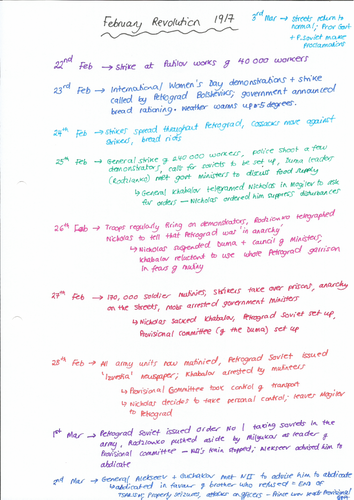 February Revolution 1917
3rd Mar → Streets return to
normal; Prov Govt
+ P. Soviet make
proclamations
22nd Feb → Strike at Putilov works of 40 000 workers
23rd Feb → International Women's Day demonstrations + strike
called by Petrograd Bolsheviks; government announced
bread rationing. Weather warms up to -5 degrees.
24th Feb → Strikes spread throughout Petrograd, cossacks move against
strikers, bread riots
25th Feb → General strike of 240 000 workers, police shoot a few
demonstrators, call for soviets to be set up, Duma leaders
(Rodzianko) met govt ministers to discuss food supply
↳ General Khabalov telegrammed Nicholas in Mogilev to ask
for orders – Nicholas ordered him suppress disturbances
26th Feb → Troops regularly firing on demonstrators, Rodzianko telegraphed
Nicholas to tell that Petrograd was 'in anarchy'
↳ Nicholas suspended Duma + Council of Ministers;
Khabalov reluctant to use whole Petrograd garrison
in fears of mutiny
27th Feb → 170,000 soldier mutinies, Strikers take over prisons, anarchy
on the streets, mobs arrested government ministers
↳ Nicholas sacked Khabalov, Petrograd Soviet set up,
Provisional committee (of the Duma) set up
28th Feb → All army units now mutinied, Petrograd Soviet issued
'Izvestia' newspaper; Khabalov arrested by mutineers
↳ Provisional Committee took control of transport
↳ Nicholas decided to take personal control; leaves Mogilev
to Petrograd
1st Mar → Petrograd Soviet issued order No 1 taking soviets in the
army, Rodzianko pushed aside by Milyukov as leader of
Provisional committee – train stopped; Alekseev advised him to
abdicate
2nd Mar → General Alekseev + Guchakov met NII to advise him to abdicate
↳ abdicated in favour of brother who refused = END OF
TSARISM; Property seizures, attacks on officers –